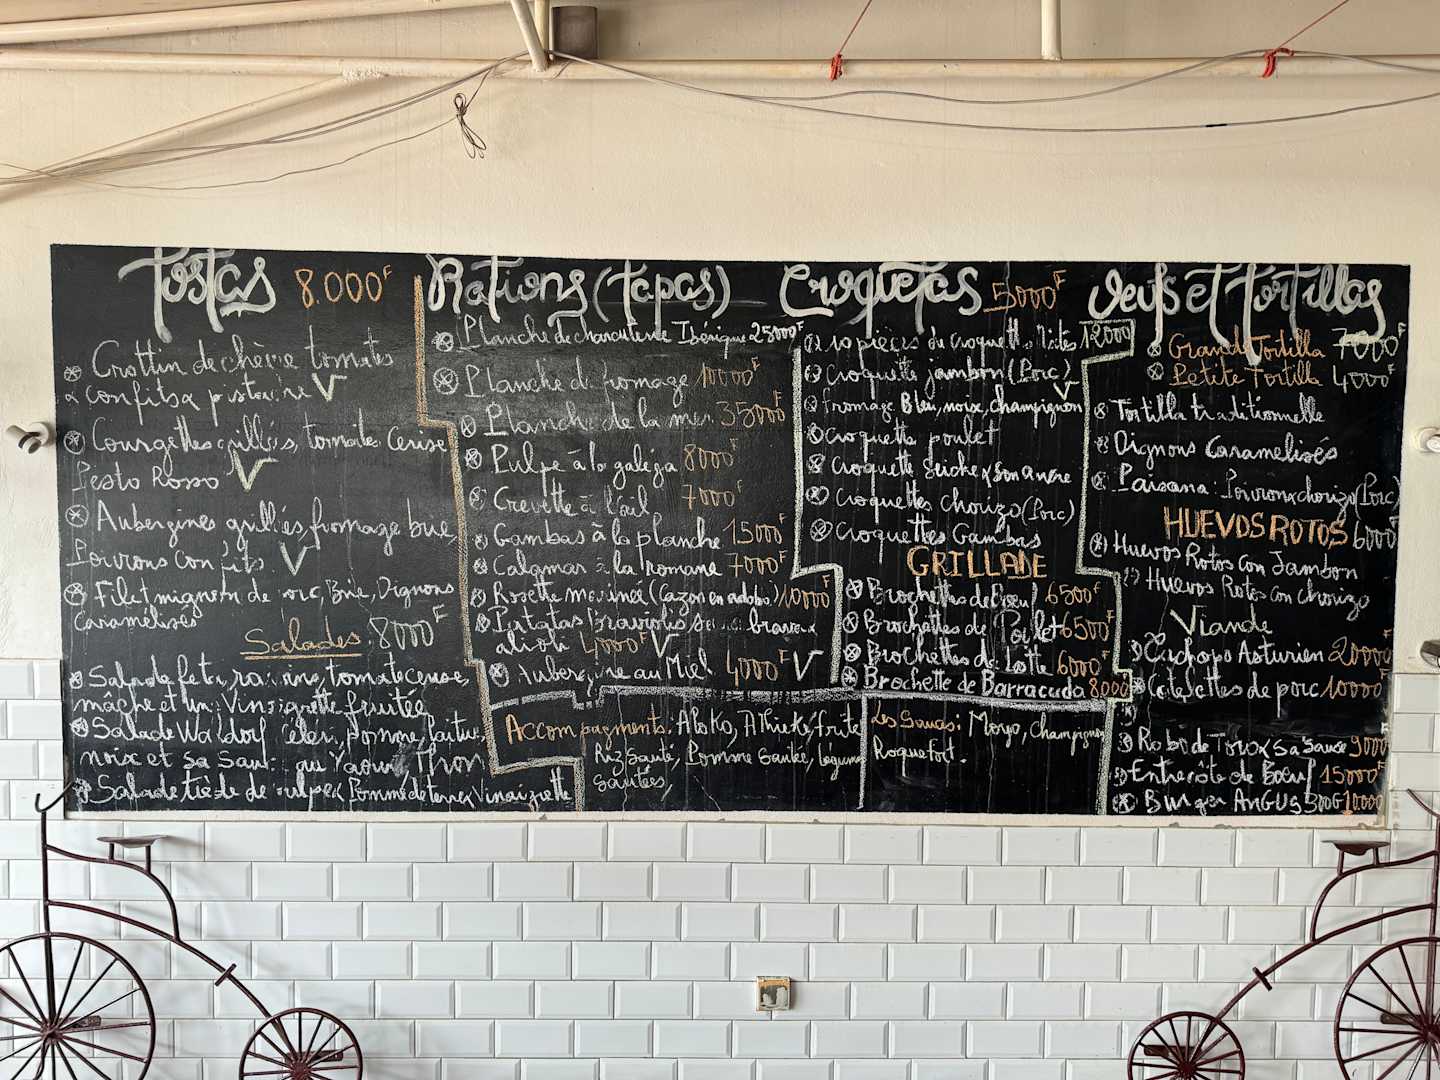 Tostas 8.000F
Crottin de chèvre tomates
confits pistache V
Courgettes grillées, tomates Cerise
Pesto Rosso V
Aubergines grillées, fromage brie
Poivrons confits V
Filet mignon de porc, Brie, Oignons
Caramélisés
Salades 8000F
Salade feta, raisins, tomate cerise,
mâche et un Vinaigrette fruitée
Salade Waldorf céleri, Pomme, laitue,
noix et sa Sauce au Yaourt, Thon
Salade tiède de Poulpe x Pomme de terre x Vinaigrette
Rations (tapas)
Planche de charcuterie Ibérique 25000F
Planche de fromage 10000F
Planche de la mer 35000F
Pulpe à la galéga 8000F
Crevette à l'ail 7000F
Gambas à la planche 15000F
Calamar à la romane 7000F
Rosette marinée (Cazon en adobo) 10000F
Patatas Bravas
alioli 4000F V
Aubergine au Miel 4000F V
Accompagnements: Aloko, Athiéké, frite
Riz Sauté, Pomme Sautée, légumes
Sautées,
Croquetas 5000F
10 pièces de croquettes Mixtes 12000F
Croquette jambon (Porc)
fromage Bleu, noix, champignon V
Croquette poulet
Croquette Seiche x Son ancre
Croquettes chorizo (Porc)
Croquettes Gambas
GRILLADE
Brochettes de Boeuf 6500F
Brochettes de Poulet 6500F
Brochettes de Lotte 6000F
Brochette de Barracuda 8000
Les Sauces: Moryo, Champignon
Roquefort.
Oeufs et Tortillas
Grand Tortilla 7000F
Petite Tortilla 4000F
Tortilla traditionnelle
Oignons Caramelisés
Paisana Poivron x chorizo (Porc)
HUEVOS ROTOS 6000F
Huevos Rotos con Jambon
Huevos Rotos con chorizo
Viande
Cachopo Asturien 20000
Cotelettes de porc 10000F
Rabo de Toro x Sa Sauce 9000
Entrecôte de Boeuf 15000F
Burger AnGUs 300G 10.000